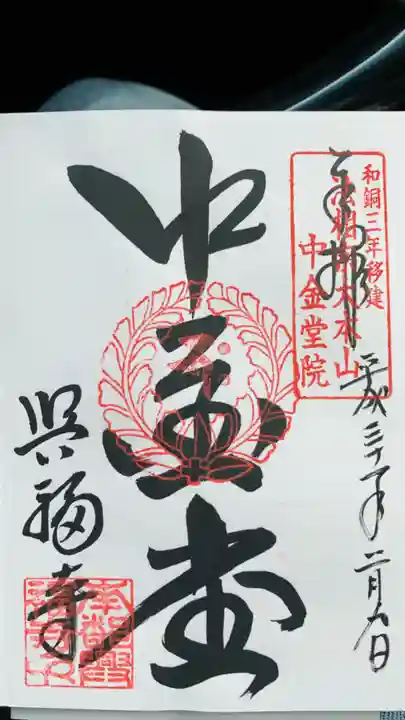 奉拝
和銅三年移建
法相宗大本山
中金堂院
平成三十一年二月九日
中金堂
興福寺